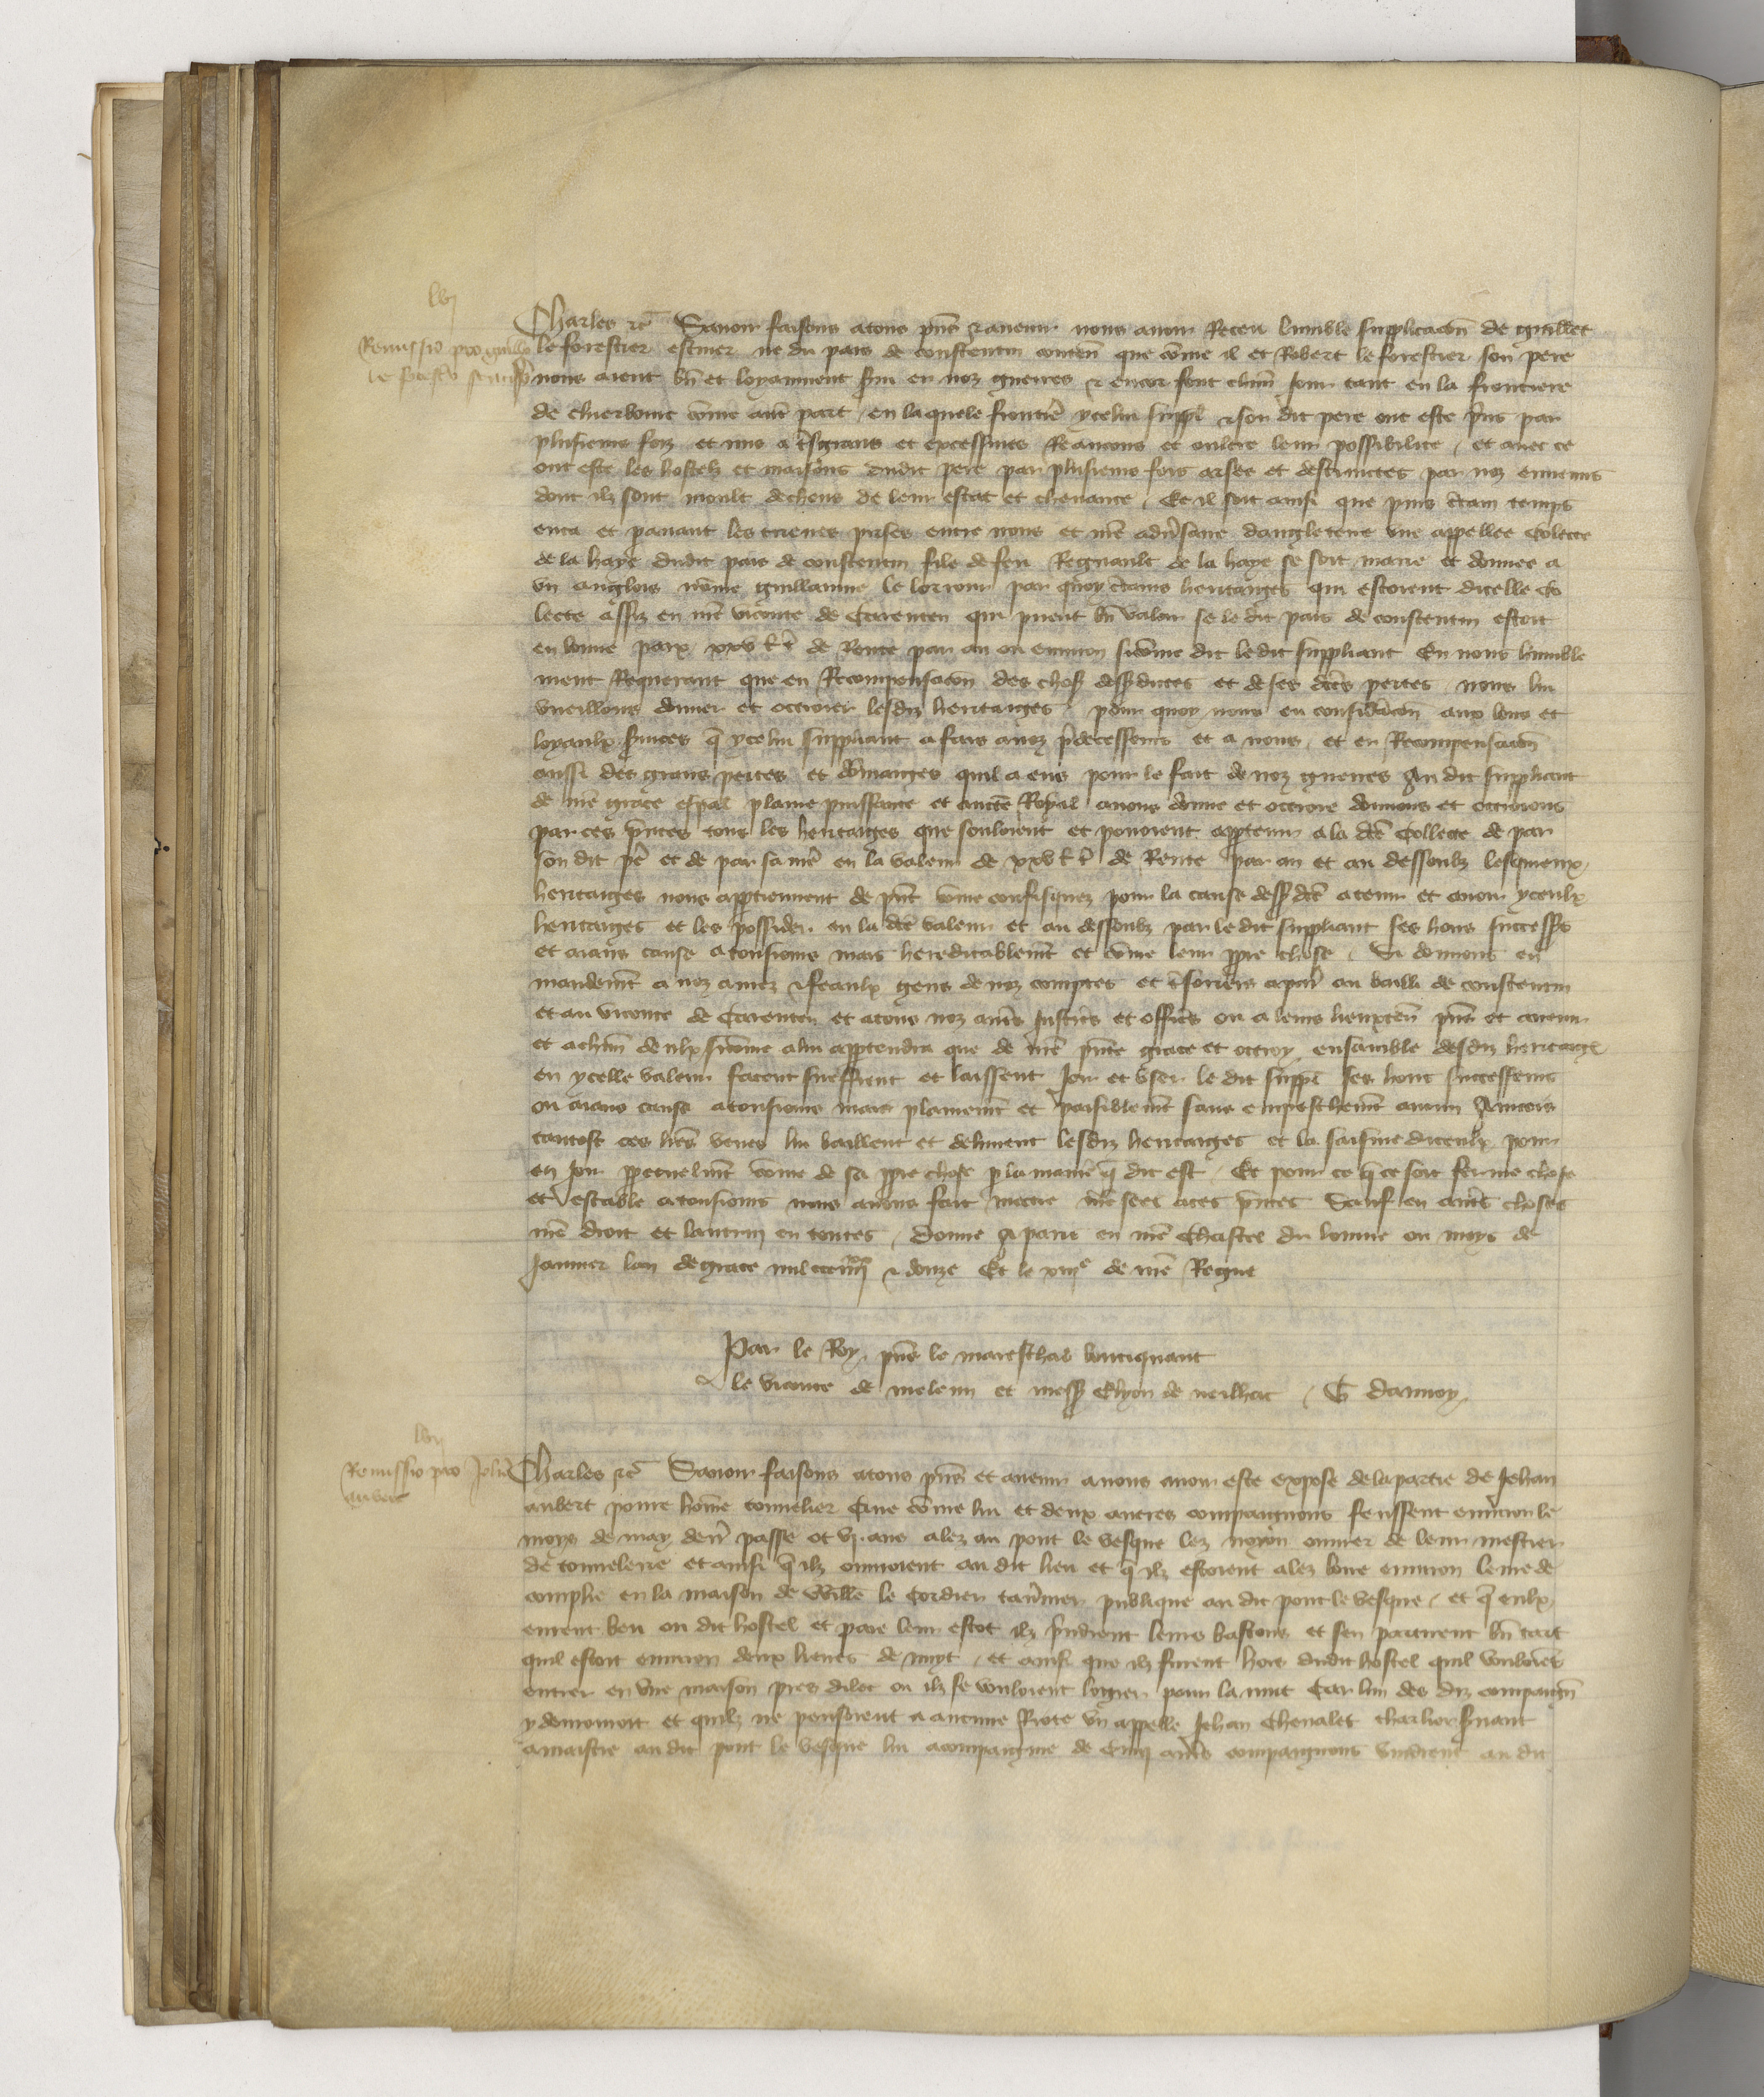 lvj
Remissio pro Guillo
le forestier
Charles etc Savoir faisons a tous pñs & avenir nous avoir Receu lumble supplicacoñ de Guillet
le forestier escuier ne du pais de constentin conteñ que cõme il et Robert le forestier son pere
nous aient bñ et loyaument servi en noz guerres & encor font chũn Jour tant en la frontiere
de chierbourc cõme aut̃ part / en laquele frontiẽ ycelui suppl̃ & son dit pere ont este p̃ns par
plusieurs foiz et mis a tr̃sgrans et excessives Reancons et oultre leur possibilite / et avec ce
ont este les hostelz et maisons dudit pere par plusieurs fois arses et destruictes par noz ennemis
dont ilz sont moult decheus de leur estat et chevance / Et il soit ainsi que puis c̃tain temps
enca et paravant les trieves prises entre nous et nr̃e adv̾saire dangleterre une appellee Colecte
de la haye dudit pais de constentin fille de feu Regnault de la haye se soit mariee et donnee a
un anglois nõme guillaume le lorrour par quoy c̃tains heritaiges qui estoient dicelle Co
lecte assiz en nr̃e viconte de Carenten qui puent bñ valoir se le dit pais de constentin estoit
en bonne paix xxv l t̃ de Rente par an ou environ sicõme dit ledit suppliant En nous humble
ment Requerant que en Recompensacoñ des choses dess̾ dictes et de ses dc̃es pertes nous lui
vueillons donner et octroier lesdiz heritaiges / pour quoy nous en consid̾acoñ aux bons et
loyaulx s̾vices q̃ ycelui suppliant a fais a noz p̾decesseurs et a nous / et en Recompensacoñ
aussi des grans pertes et dõmaiges quil a eus pour le fait de noz guerres Au dit suppliant
de nr̃e grace esp̃al plaine puissance et auctẽ Royal avons donne et octroie donnons et octroions
par ces p̃ntes tous les heritaiges que souloient et povoient app̾tenir a la dc̃e Collecte de par
son dit pẽ et de par sa mẽ en la valeur de xxv l t̃ de Rente par an et au dessoubz lesquieux
heritaiges nous app̾tiennent de p̃nt cõme confisquez pour la cause dess̾ dc̃e a tenir et avoir yceulx
heritaiges et les possider en la dc̃e valeur et au dessoubz par le dit suppliant ses hoirs success̾s
et aians cause a tousiours mais hereditablem̃t et cõme leur p̾pre chose / Si donnons en
mandem̃t a noz amez & feaulx gens de noz comptes et tr̃soriers a paris̾ au bailli de constentin
et au viconte de Carenten et a tous noz aut̃s Justic̃s et offic̃s ou a leurs lieuxteñ pñs et avenir
et a chũn deulx sicõme a lui app̾tendra que de nr̃e p̃nte grace et octroy ensamble desdiz heritaiges
en ycelle valeur facent sueffrent et laissent Joir et user le dit suppl̃ ses hoirs successeurs
ou aians cause a tousiours mais plainem̃t et paisiblem̃t sans empeschem̃t aucun Aincois
tantost ces lr̃es veues lui baillent et delivrent lesdiz heritaiges et la saisine diceulx pour
en Joir p̾petuelm̃t cõme de sa p̾pre chose p̾ la maniẽ q̃ dit est / Et pour ce q̃ ce soit ferme chose
et estable a tousiours nous avons fait mettre nr̃e seel a ces p̃ntes Sauf en aut̃s choses
nr̃e droit et lautrui en toutes / Donne A paris en nr̃e Chastel du louvre ou moys de
Janvier lan de grace mil ccc iiijxx & douze Et le xiije de nr̃e Regne
Par le Roy pñs le mareschal bouciquaut
le viconte de meleun et mess̾ Elyon de neilhac / G Daunoy
lvij
Remissio pro Joh̃e
aubert
Charles etc Savoir faisons a tous pñs et avenir a nous avoir este expose de la partie de Jehan
aubert povre hõme tonnelier Que cõme lui et deux autres compaignons feussent environ le
moys de may deñr passe ot vj ans alez au pont le vesque lez noyon ouvrer de leur mestier
de tonnelerie et ainsi q̃ ilz ouvroient au dit lieu et q̃ ilz estoient alez boire environ leure de
complie en la maison de Wille le Cordier tav̾nier publique au dit pont le vesque / et q̃ eulx
eurent beu ou dit hostel et paie leur escot ilz p̾ndrent leurs bastons et sen partirent bñ tart
quil estoit environ deux heures de nuyt / et ainsi que ilz furent hors dudit hostel quil vouloiẽt
entrer en une maison pres dilec ou ilz se vouloient logier pour la nuit Car lun des diz compaigñ
y demouroit et quilz ne pensoient a aucune Riote un appelle Jehan Chevalet charlier s̾vant
a maistre au dit pont le vesque lui acompaigne de Cinq aut̃s compaignons vindrent au dit